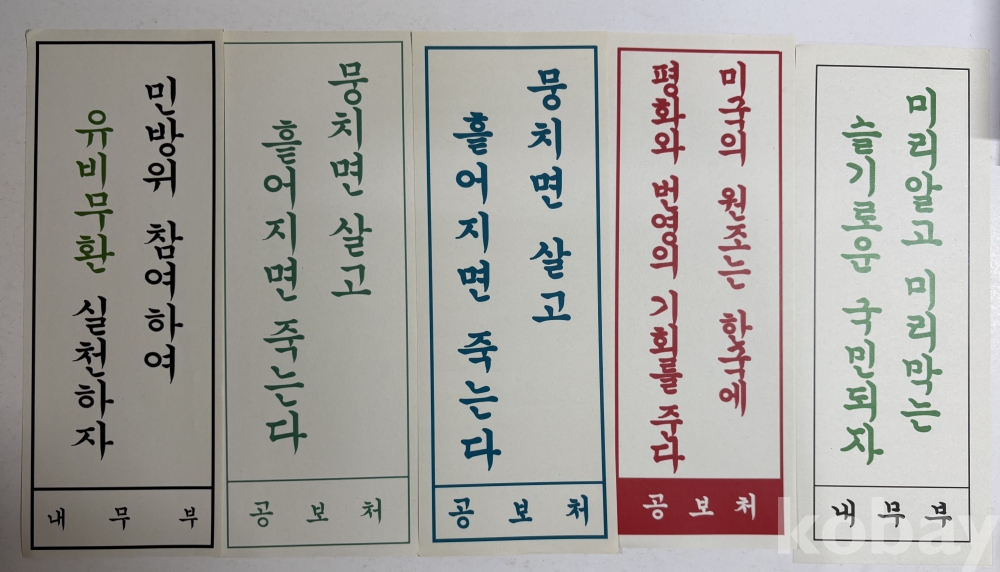 민방위 참여하여
유비무환 실천하자
내 무 부
뭉치면 살고
흩어지면 죽는다
공 보 처
뭉치면 살고
흩어지면 죽는다
공 보 처
미국의 원조는 한국에
평화와 번영의 기회를 준다
공 보 처
미리알고 미리막는
슬기로운 국민되자
내 무 부
kobay